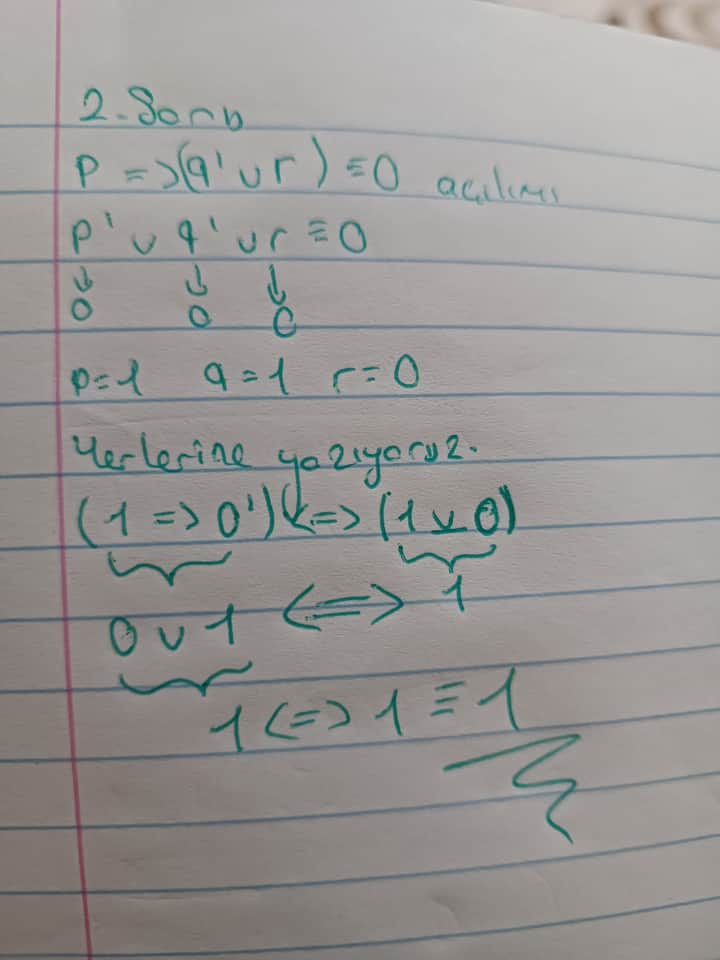 2. Soru
p => (q' v r) ≡ 0 açılımı
p' v q' v r ≡ 0
↓ ↓ ↓
0 0 0
p = 1 q = 1 r = 0
Yerlerine yazıyoruz.
(1 => 0') <=> (1 v 0)
0 v 1 <=> 1
1 <=> 1 ≡ 1